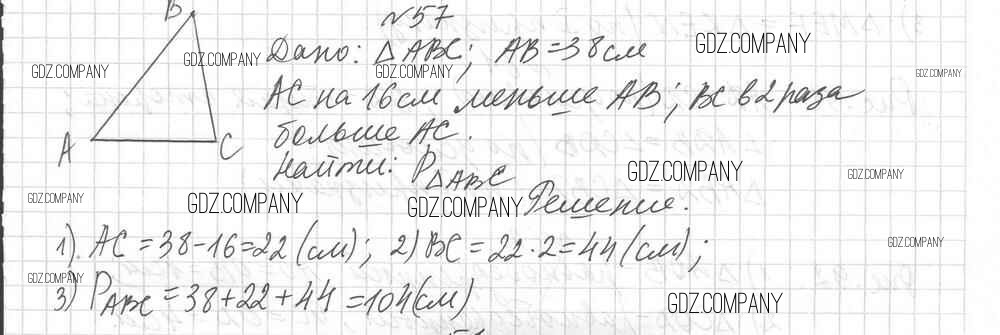 №57
B
Дано: △ABC; AB=38см
AC на 16см меньше AB; BC в 2 раза
больше AC.
A
C
Найти: P△ABC
Решение.
1). AC = 38-16=22 (см); 2) BC = 22·2=44 (см);
3) PABC = 38+22+44 = 104(см)
GDZ.COMPANY
GDZ.COMPANY
GDZ.COMPANY
GDZ.COMPANY
GDZ.COMPANY
GDZ.COMPANY
GDZ.COMPANY
GDZ.COMPANY
GDZ.COMPANY
GDZ.COMPANY
GDZ.COMPANY
GDZ.COMPANY
GDZ.COMPANY